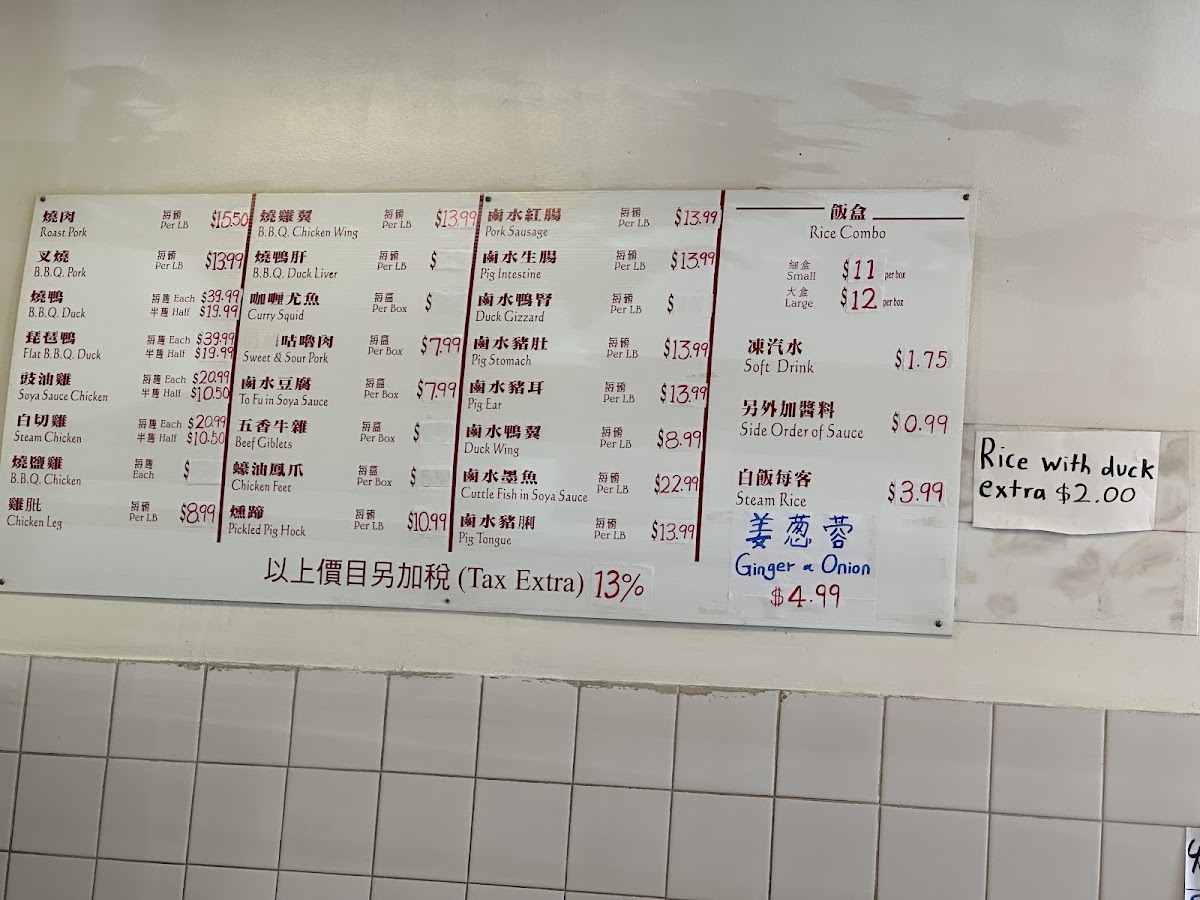 燒肉 每磅 $15.50
Roast Pork Per LB
叉燒 每磅 $13.99
B.B.Q. Pork Per LB
燒鴨 每隻 Each $39.99
B.B.Q. Duck 半隻 Half $19.99
琵琶鴨 每隻 Each $39.99
Flat B.B.Q. Duck 半隻 Half $19.99
豉油雞 每隻 Each $20.99
Soya Sauce Chicken 半隻 Half $10.50
白切雞 每隻 Each $20.99
Steam Chicken 半隻 Half $10.50
燒鹽雞 每隻 $
B.B.Q. Chicken Each
雞肶 每磅 $8.99
Chicken Leg Per LB
燒雞翼 每磅 $13.99
B.B.Q. Chicken Wing Per LB
燒鴨肝 每磅 $
B.B.Q. Duck Liver Per LB
咖喱尤魚 每盒 $
Curry Squid Per Box
咕嚕肉 每盒 $7.99
Sweet & Sour Pork Per Box
鹵水豆腐 每盒 $7.99
To Fu in Soya Sauce Per Box
五香牛雜 每盒 $
Beef Giblets Per Box
蠔油鳳爪 每盒 $
Chicken Feet Per Box
燻蹄 每磅 $10.99
Pickled Pig Hock Per LB
鹵水紅腸 每磅 $13.99
Pork Sausage Per LB
鹵水生腸 每磅 $13.99
Pig Intestine Per LB
鹵水鴨腎 每磅 $
Duck Gizzard Per LB
鹵水豬肚 每磅 $13.99
Pig Stomach Per LB
鹵水豬耳 每磅 $13.99
Pig Ear Per LB
鹵水鴨翼 每磅 $8.99
Duck Wing Per LB
鹵水墨魚 每磅 $22.99
Cuttle Fish in Soya Sauce Per LB
鹵水豬脷 每磅 $13.99
Pig Tongue Per LB
飯盒
Rice Combo
細盒
Small $11 per box
大盒
Large $12 per box
凍汽水
Soft Drink $1.75
另外加醬料
Side Order of Sauce $0.99
白飯每客
Steam Rice $3.99
姜葱蓉
Ginger a Onion
$4.99
以上價目另加稅 (Tax Extra) 13%
Rice with duck
extra $2.00